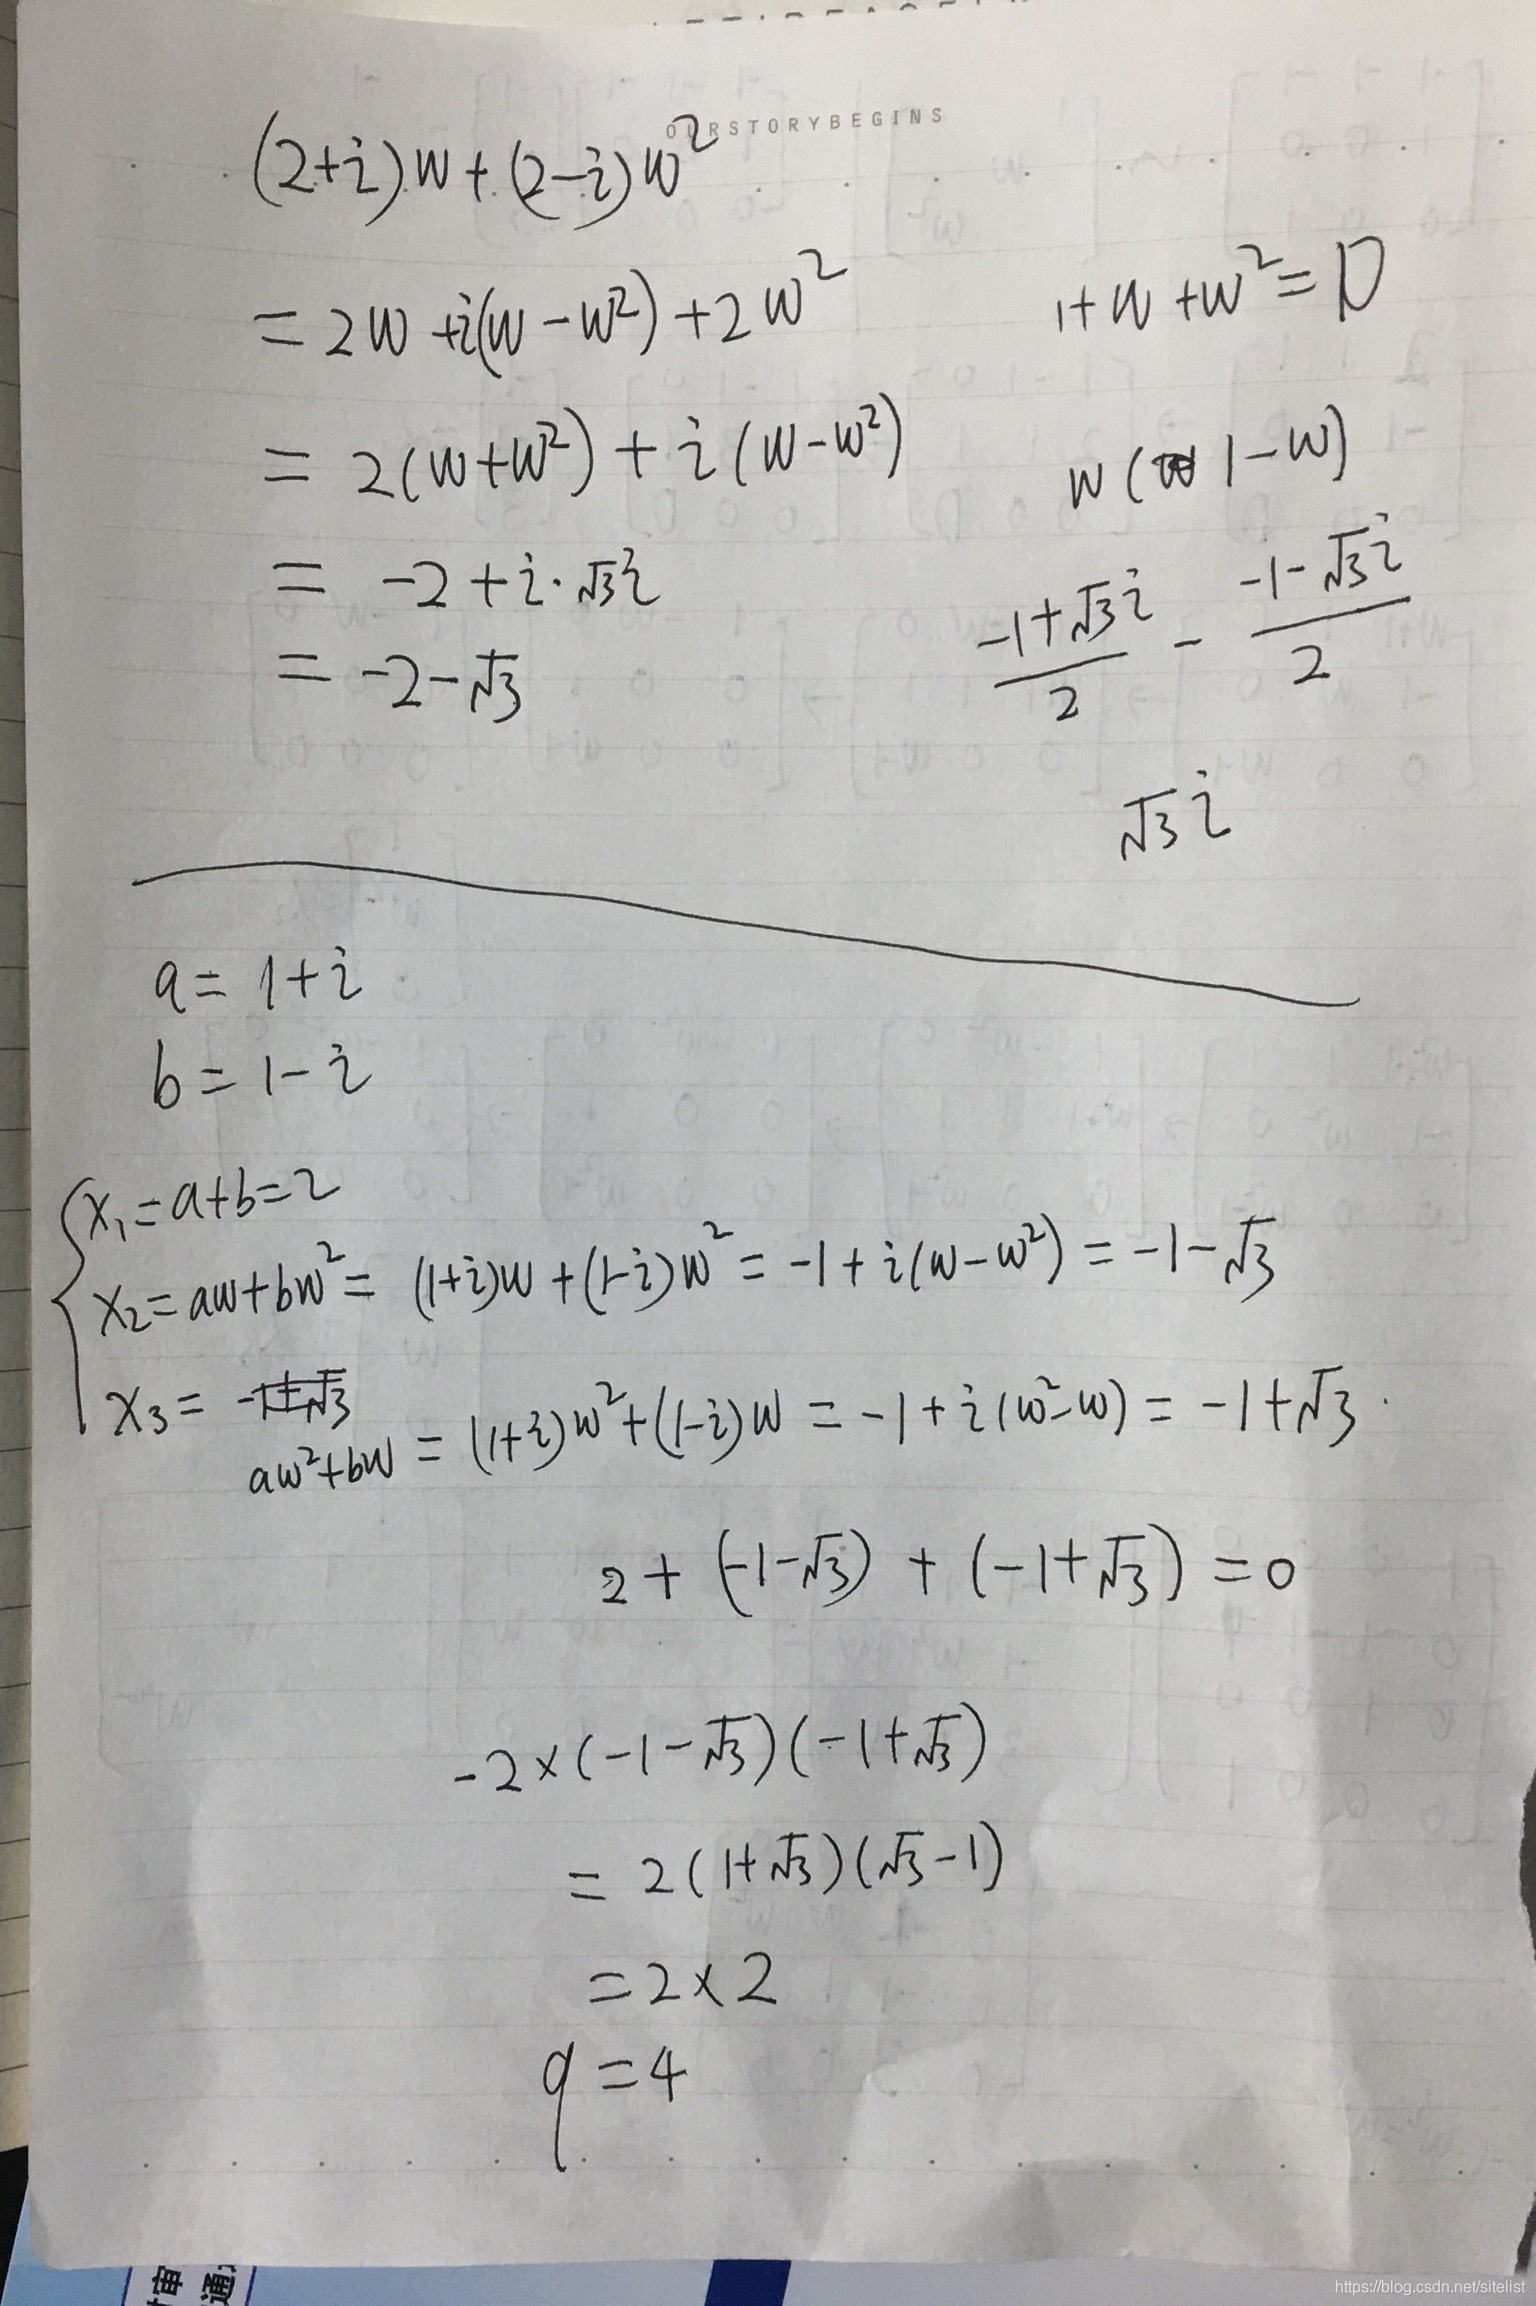 OURSTORYBEGINS
(2+i)w+(2-i)w²
=2w+i(w-w²)+2w²
1+w+w²=0
=2(w+w²)+i(w-w²)
w(1-w)
=-2+i·√3i
(-1+√3i)/2 - (-1-√3i)/2
=-2-√3
√3i
a=1+i
b=1-i
x₁=a+b=2
x₂=aw+bw²=(1+i)w+(1-i)w²=-1+i(w-w²)=-1-√3
x₃= -1+√3
aw²+bw=(1+i)w²+(1-i)w=-1+i(w²-w)=-1+√3.
2+(-1-√3)+(-1+√3)=0
-2×(-1-√3)(-1+√3)
=2(1+√3)(√3-1)
=2×2
q=4
宙
通
https://blog.csdn.net/sitelist